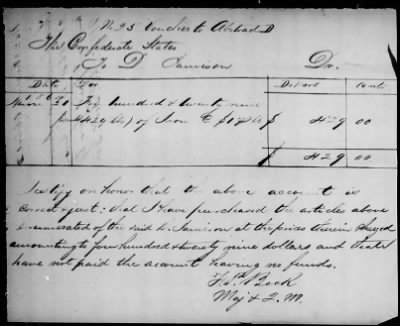 No 25 Voucher to Abstract D
The Confederate States
To D Jamison Dr.
Date For Dollars Cents
30 hundred & twenty nine
(429 lbs) of Iron $ 429 00
$ 429 00
I certify on honor that the above account is
correct & just; that I have purchased the articles above
enumerated of the said D. Jamison at the prices therein charged
amounting to four hundred & twenty nine dollars and that I
have not paid the account having no funds.
Beck
Maj & Q.M.